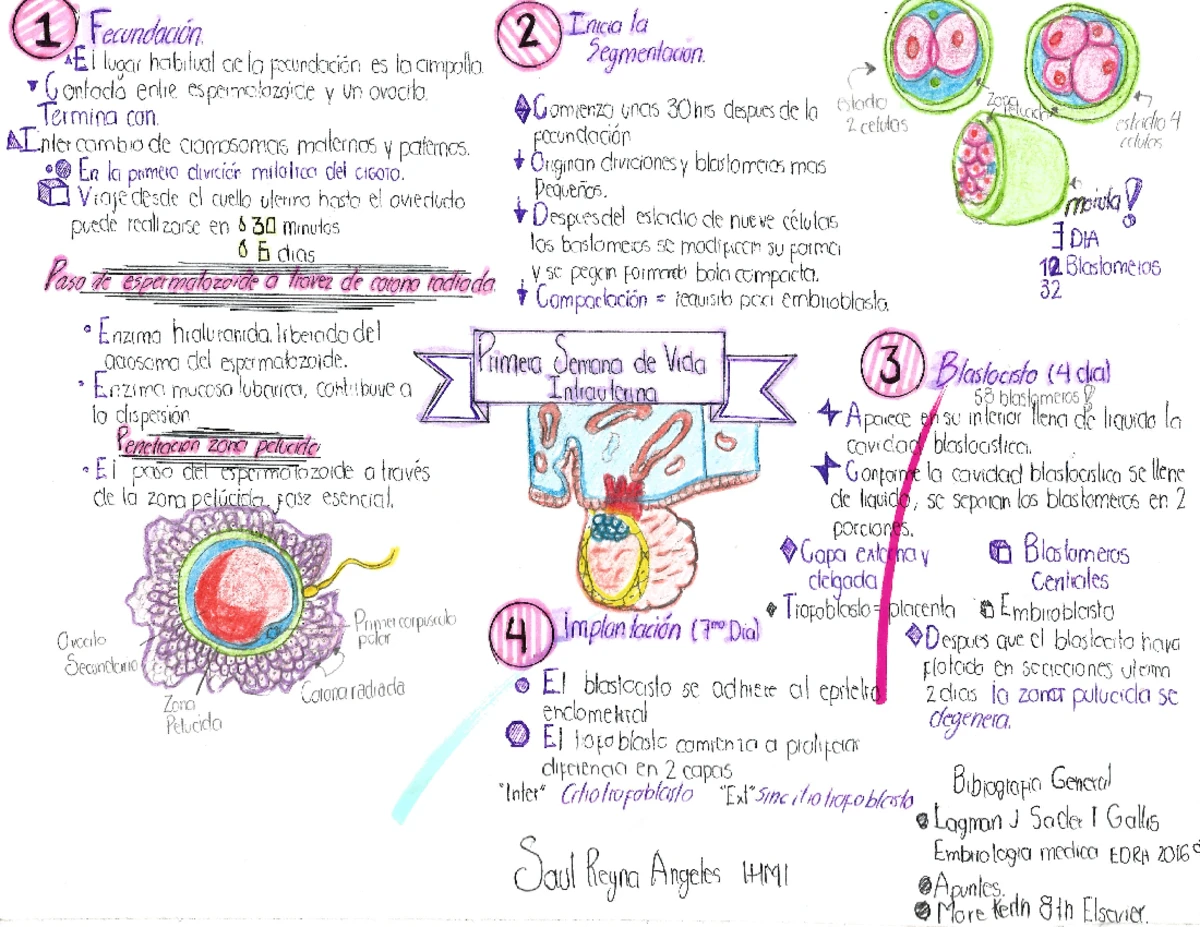 1 Fecundación.
El lugar habitual de la fecundación es la ampolla.
Contacto entre espermatozoide y un ovocito.
Termina con.
Intercambio de cromosomas maternos y paternos.
En la primera división mitótica del cigoto.
Viaje desde el cuello uterino hasta el oviducto
puede realizarse en ó 30 minutos
ó 6 dias
Paso de espermatozoide a travez de corona radiada
Enzima hialuronida. liberada del
acrosoma del espermatozoide.
Enzima mucosa tubarica, contribuye a
la dispersión
Penetración zona pelucida
El paso del espermatozoide a través
de la zona pelúcida, fase esencial.
Ovocito
Secundario
Zona
Pelucida
Primer corpusculo
polar
Corona radiada
2 Inicia la
Segmentación.
Comienza unas 30 hrs despues de la
fecundación
Originan diviciones y blastomeros mas
Pequeños.
Despues del estadio de nueve células
los bastomeros se modifican su forma
y se pegan formando bola compacta.
Compactación = requisito para embrioblasto.
estadio
2 celulas
Zona
pelucida
estadio 4
celulas
morula!
3 DIA
12 Blastomeros
32
Primera Semana de Vida
Intrauterina
3 Blastocisto (4 dia)
58 blastomeros
Aparece en su interior llena de liquido la
cavidad blastocistica.
Conforme la cavidad blastocistica se llene
de liquido, se separan los blastomeros en 2
porciones.
Capa externa y
delgada
Trofoblasto = placenta
Blastomeros
Centrales
Embrioblasto
Despues que el blastocito haya
flotado en secreciones uterina
2 dias la zona pulucida se
degenera.
4 Implantación (7mo Dia)
El blastocisto se adhiere al epitelio
endometrial
El trofoblasto comienza a proliferar
diferencia en 2 capas
"Inter" Citotrofoblasto "Ext" Sincitiotrofoblasto
Saul Reyna Angeles 1HM1
Bibiografia General
Lagman J Sadler T Gallis
Embriologia medica EDRA 2016
Apuntes.
More Keith 8th Elsevier.